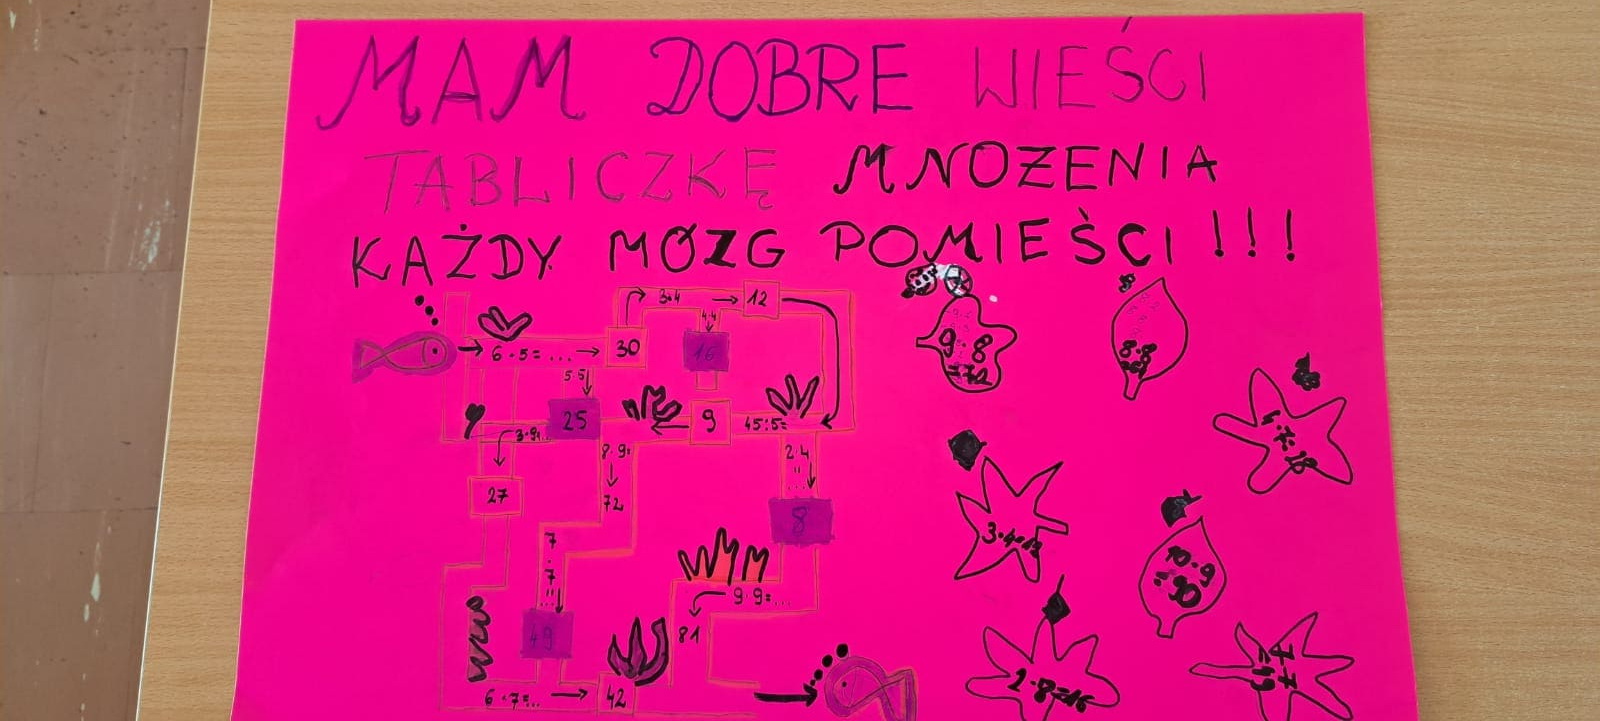 MAM DOBRE WIEŚCI
TABLICZKĘ MNOZENIA
KAŻDY MÓZG POMIEŚCI!!!
3·4 → 12
4·4
→ 6·5=... → 30
16
5·5
25
9
45:5=
3·9=...
8·9=
2·4
=
...
27
72
8
7
·
7
=
...
9·9=...
49
81
6·7=... → 42
9·8
=72
8·8
3·4=12
10·9
=90
2·8=16
7·7
=49